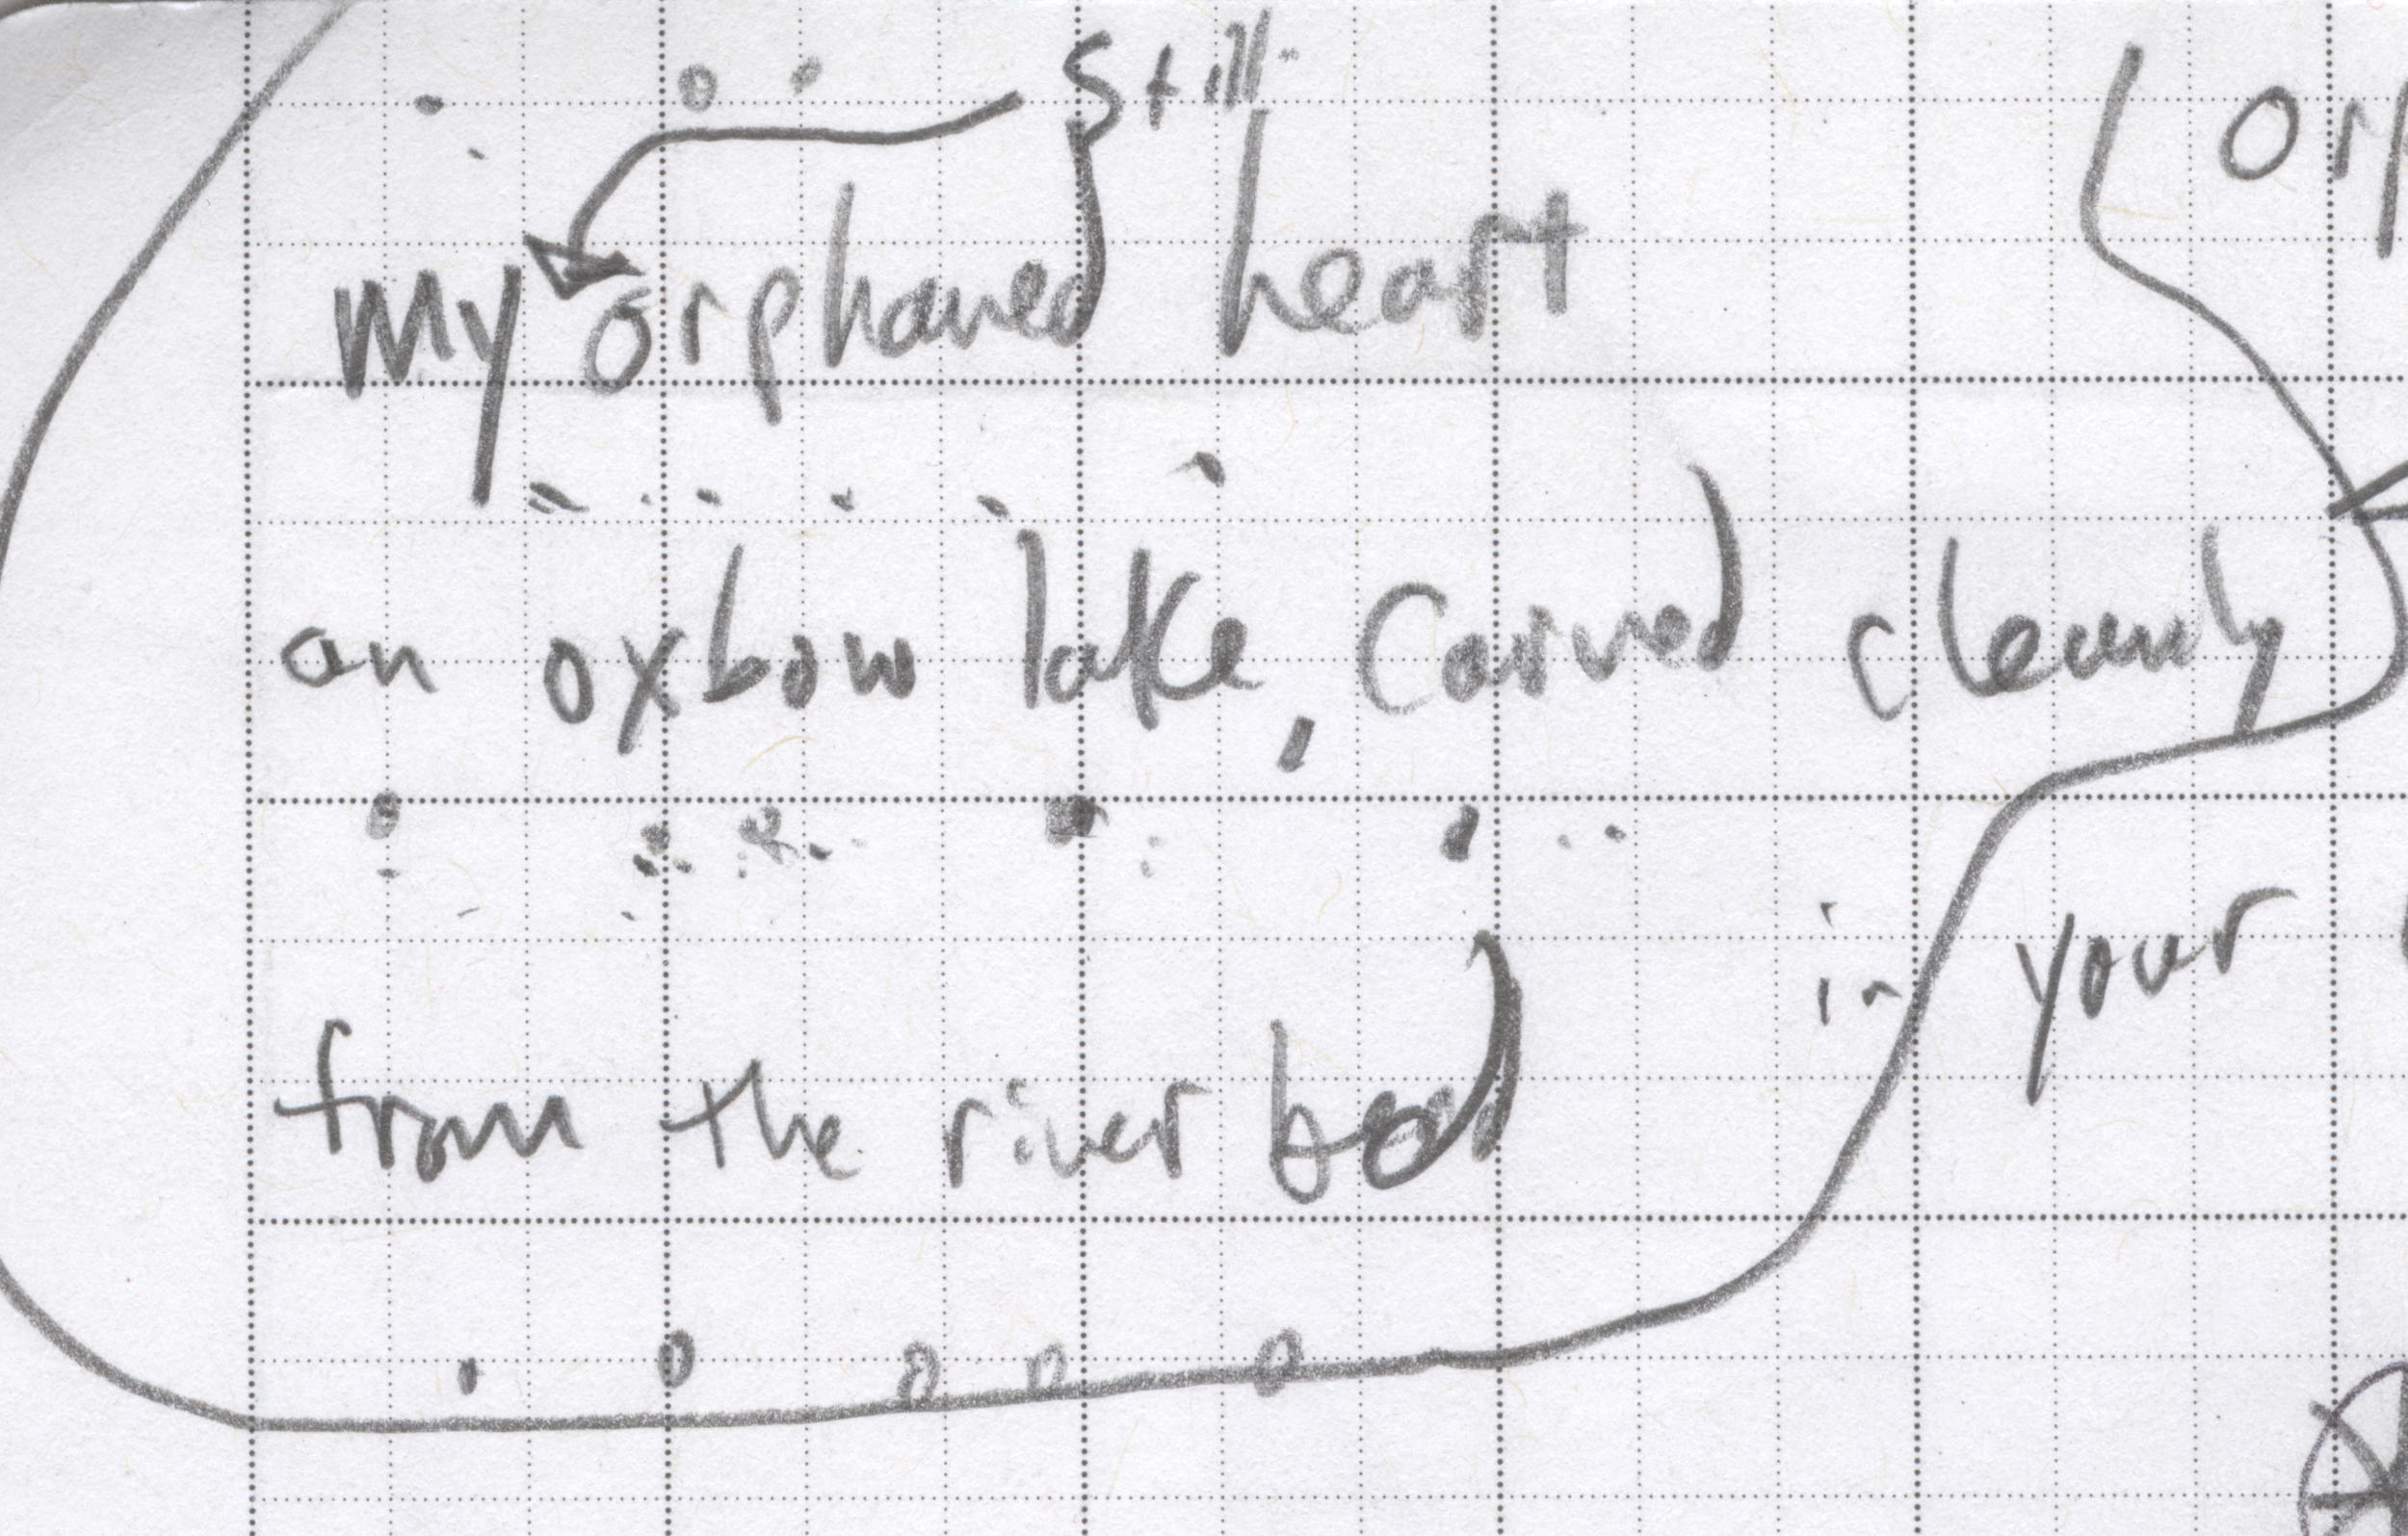 still
my orphaned heart
an oxbow lake, carved cleanly
in your
from the river bed